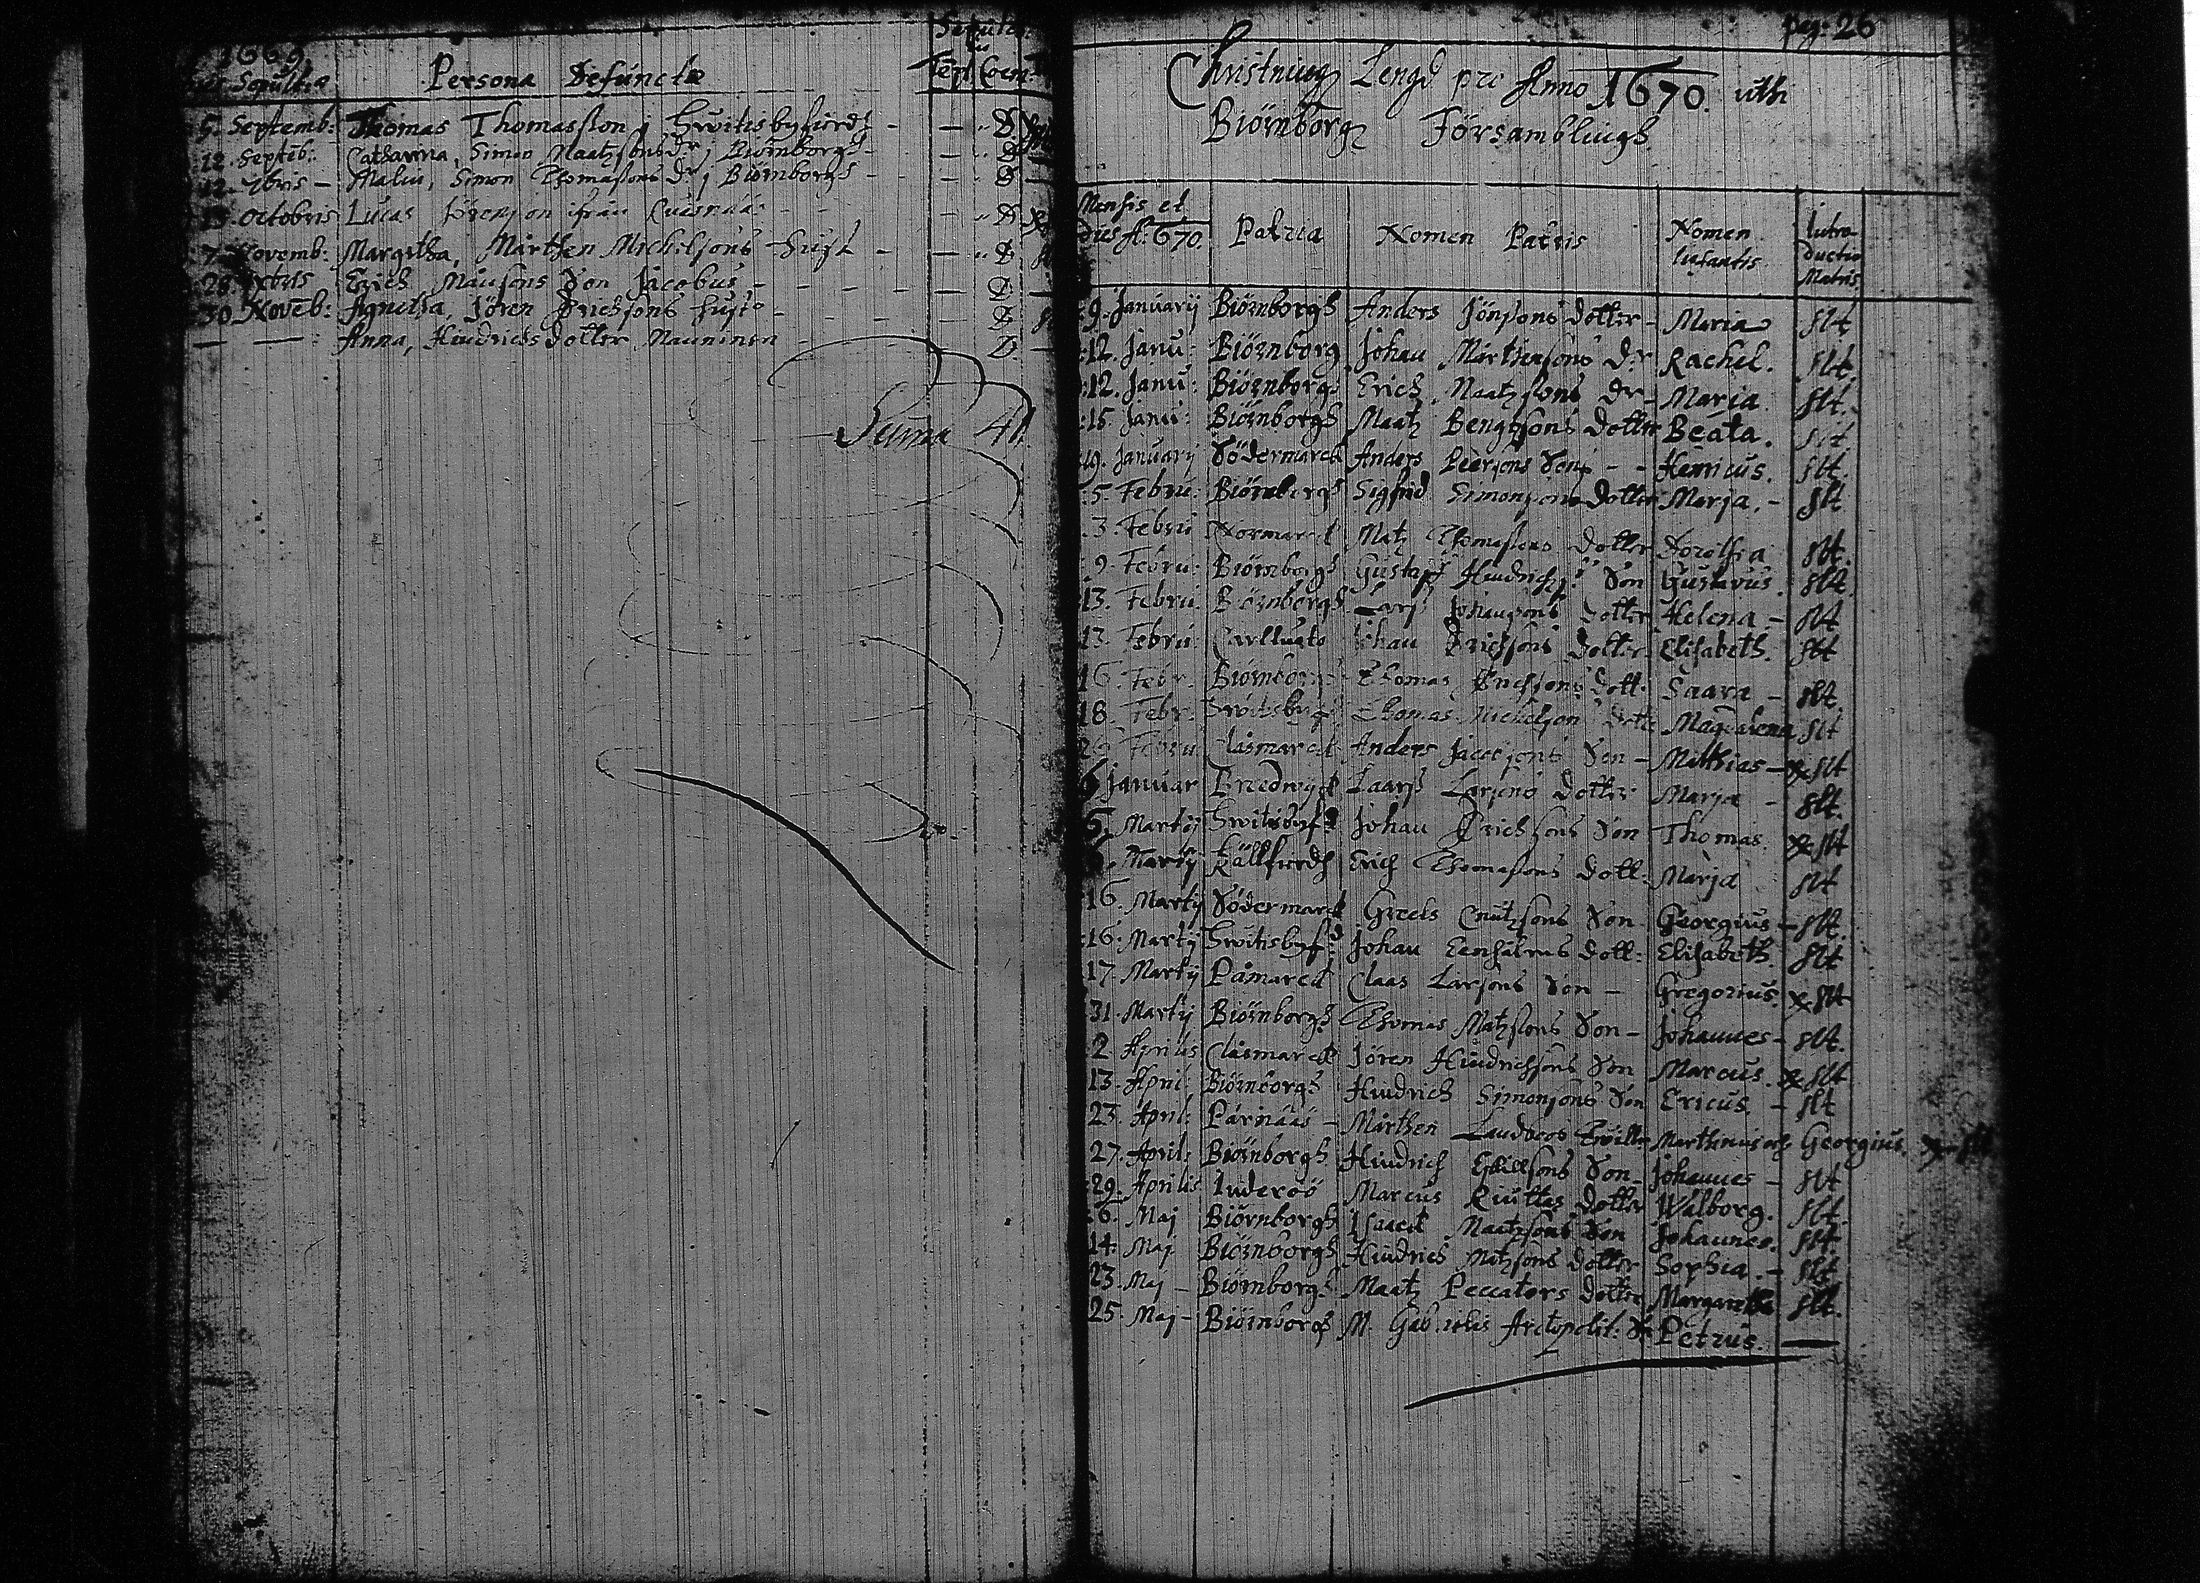 1669.
Sepulta Persona Defuncta Sepult
Tēpl Coem:
5. Septemb: Thomas Thomasson j Hwitisbyfierdh - - D
12. Septēb: Catharina, Simon Maatzsons Dr j Biörnborgh - - D
12. 7bris - Malin, Simon Thomasons Dr j Biörnborgh - - D
Octobris Lucas ifrån - - D
7. Novemb: Margetha, Mårthen Michelsons Hust - - D
28. Erich Månsons Son Jacobus - - - - - D
30 Novēb: Agnetha, Jören Erichsons Hust - - - - D
— — Anna, Hindrichs dotter Mauninen - D
Suma 41.
pag: 26
Christning Lengd pro Anno 1670. uthi
Biörnborgz Församblingh
Mensis et
dies A: 670. Patria Nomen Patris Nomen
Infantis Intro-
ductio
Matris
9. Januarij Biörnborgh Anders Jönsons dotter - Maria slt
12. Janu: Biörnborg Johan Mårthensons Dr Rachel. slt
12. Janu: Biörnborgh Erich Maatzsons Dr - Maria slt.
15. Janu: Biörnborgh Maatz Bengtsons dotter Beata. slt
19. Januarij Södermarck Anders Peersons Son - - Henricus. slt
5. Febru: Biörnborgh Sigfrid Simonsons Dotter Marja. - slt
3. Febru Normarck Matz Thomasons Dotter Dorothia slt.
9. Febru: Biörnborgh Gustaf Hindrichs Son Gustavus slt.
13. Febru. Biörnborgh Lars Johansons Dotter Helena - slt
13. Febru. Johan Erichsons Dotter Elisabeth. slt
16. Febr. Biörnborgh Thomas Erichsons dott: Saara - slt.
18. Febr. Thomas Michelsons Magdalena slt
26 Febru Clåsmarck Anders Jacobsons Son - Matthias - slt
6 Januar Laars Larsons Dotter Marja - slt.
5. Martij Johan Erichsons Son Thomas slt
Martij Källfierdh Erich Thomasons Dott: Marja slt
16. Martij Södermarck Greels Cnutzsons Son Georgius - slt
16. Martij Johan dott: Elisabeth. slt
17. Martij Påmarck Claas Larsons Son - Gregorius. slt
31. Martij Biörnborgh Thomas Matzsons Son - Johannes - slt.
2 Aprilis Clåsmarck Jören Hindrichsons Son Marcus. slt
13. April: Biörnborgh Hindrich Simonsons Son Ericus. - slt
23. April: Pårnääs - Mårthen Marthinus och Georgius.
27. April: Biörnborgh Hindrich Son - Johannes - slt
29. Aprilis Inderöö Marcus Dotter Walborg. slt
6. Maj Biörnborgh Isaack Maatzsons Son Johannes. slt
14: Maj Biörnborgh Hindrich Matzsons dotter Sophia. - slt
23. Maj - Biörnborgh Maatz Peccators dotter Margaretha slt.
25. Maj - Biörnborgh M. Gabrielis Arctopolit: Petrus. —